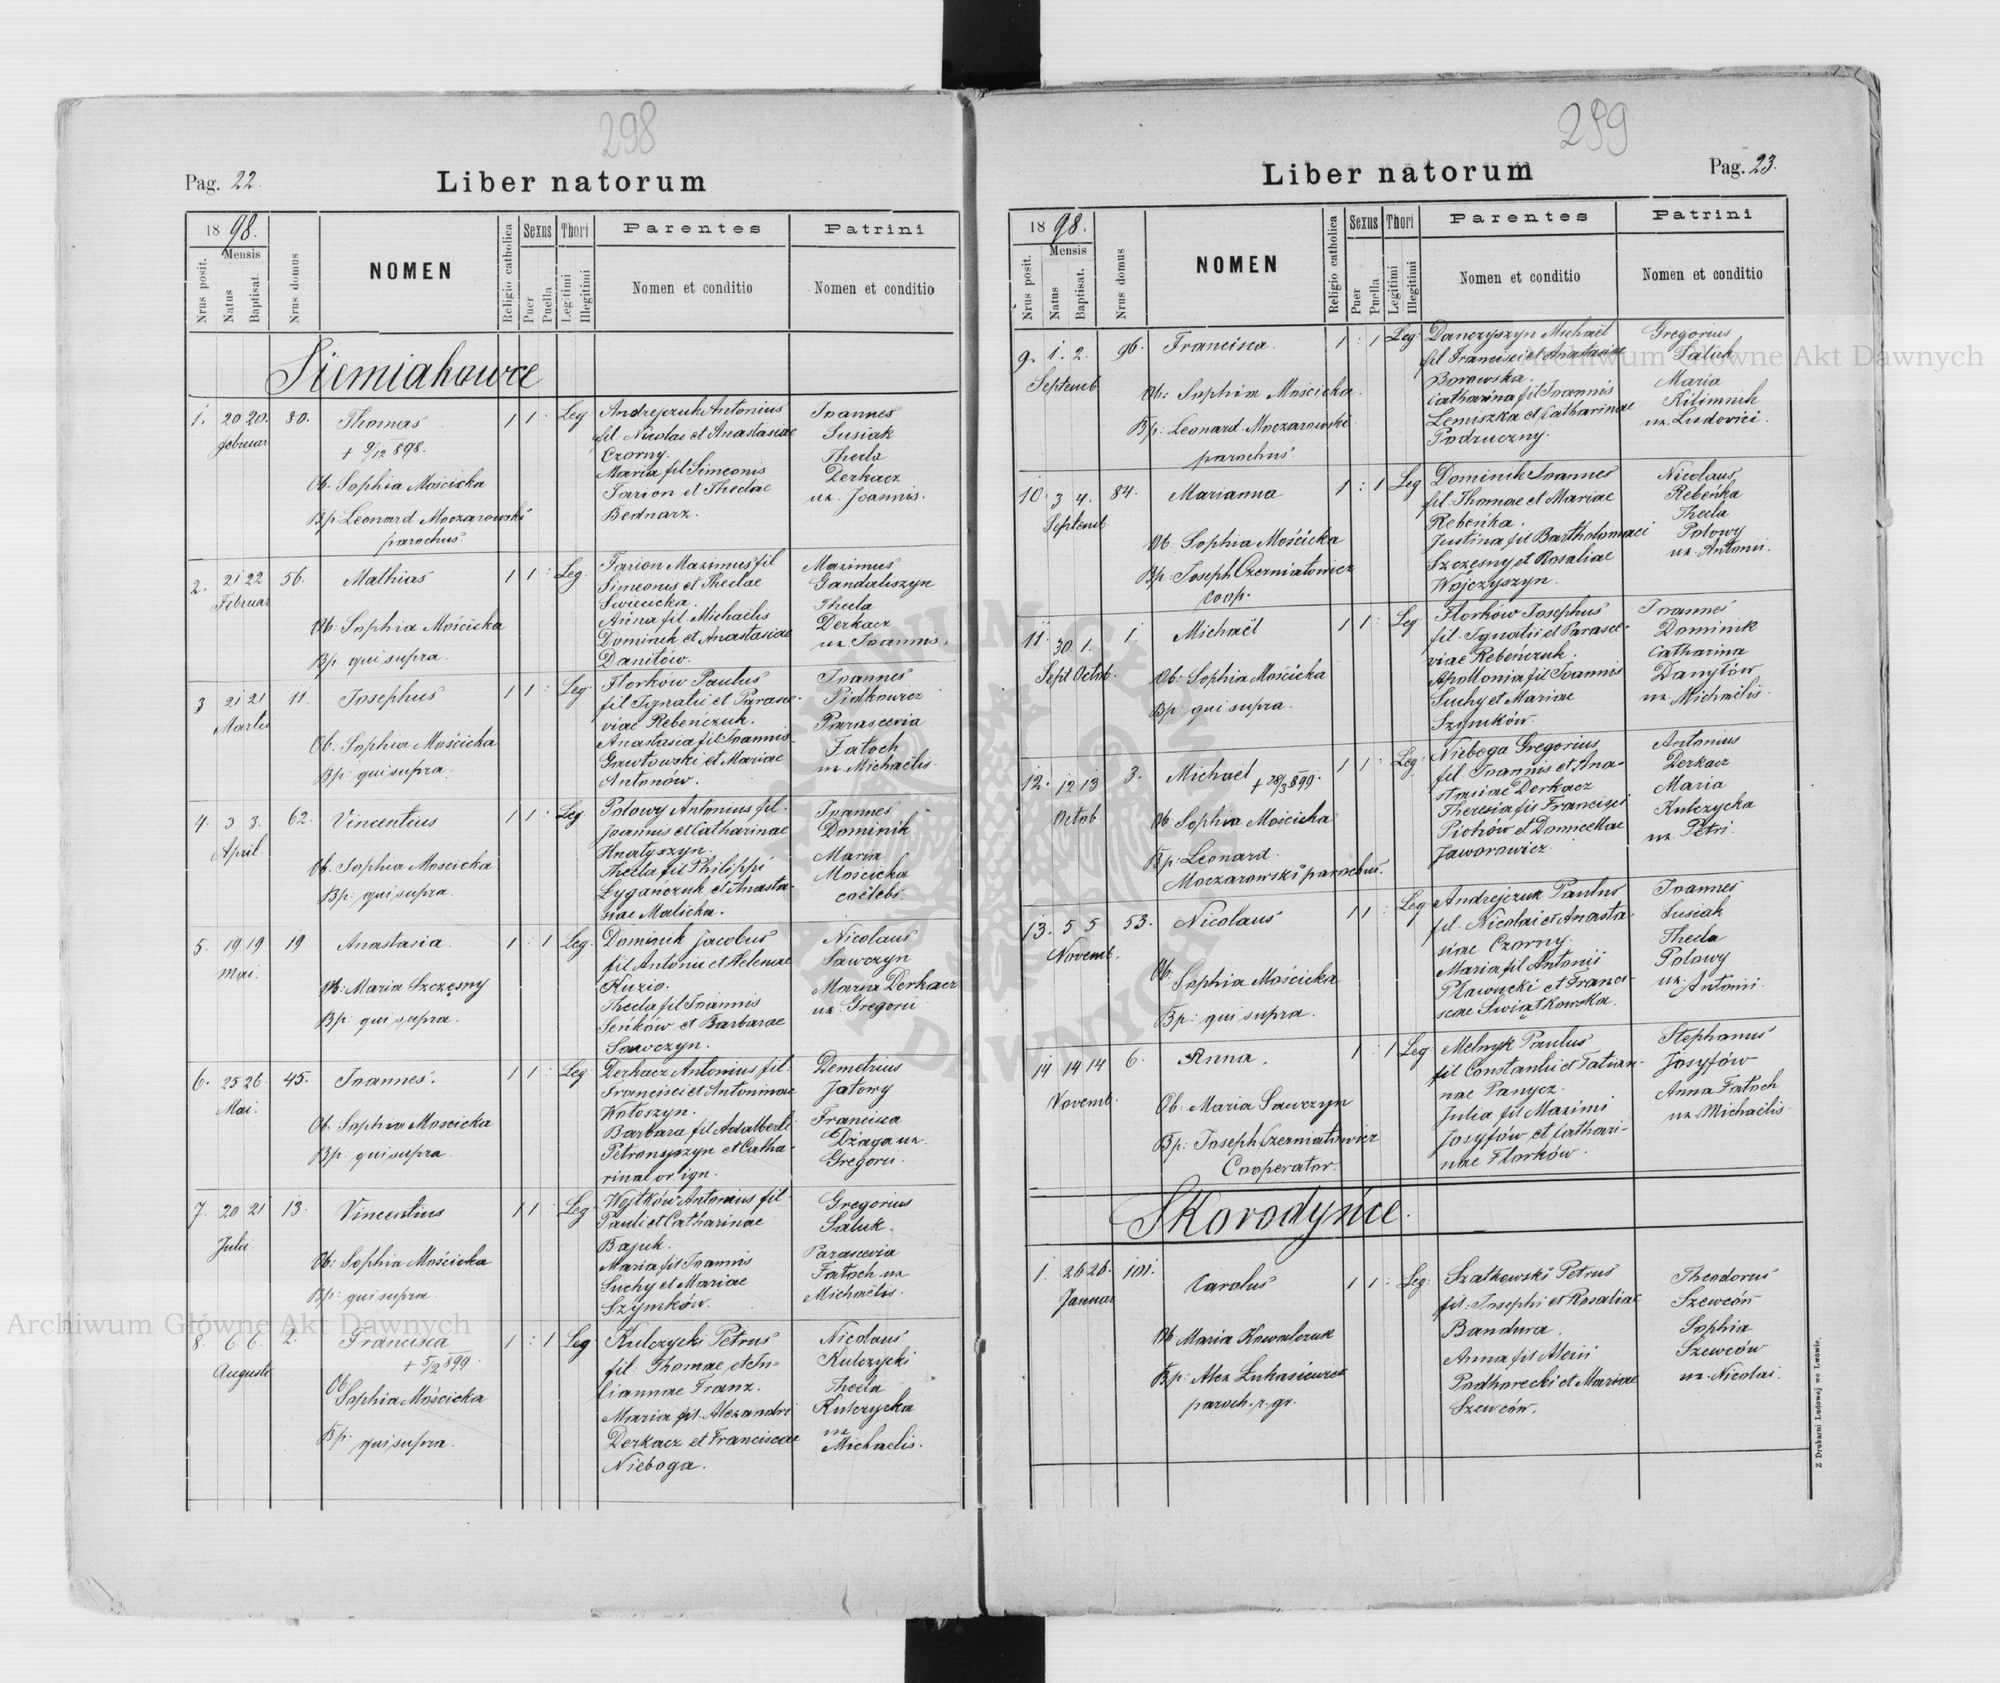 298
Pag. 22.
Liber natorum
18 98.
Mensis
Nrus posit.
Natus
Baptisat.
Nrus domus
NOMEN
Religio catholica
Sexus
Puer
Puella
Thori
Legitimi
Illegitimi
Parentes
Nomen et conditio
Patrini
Nomen et conditio
Siemiakowce
1. 20 20. 80. Thomas 1 1 : Leg Andrejczuk Antonius Joannes
Februar + 9/12 898. fil. Nicolai et Anastasiae Susiak
Czorny. Thecla
Ob. Sophia Mościcka Maria fil Simeonis Derkacz
Farion et Theclae ux. Joannis.
Bp Leonard Moczarowski Bednarz.
parochus
2. 21 22 56. Mathias 1 1 : Leg. Farion Maximus fil Maximus
Februar Simeonis et Theclae Gandaliszyn
Swiecicka. Thecla
Ob. Sophia Mościcka Anna fil. Michaëlis Derkacz
Dominik et Anastasiae ux Joannis.
Bp qui supra. Daniłów.
3 21 21 11. Josephus 1 1 : Leg Florków Paulus Joannes
Martii fil Ignatii et Parasce- Piatkowicz
viae Rebeńczuk. Parascevia
Ob. Sophia Mościcka Anastasia fil Joannis Fatoch
Gawłowski et Mariae ux. Michaëlis.
Bp: qui supra. Antonów.
4. 3 3. 62. Vincentius 1 1 : Leg Polowy Antonius fil. Joannes
April Joannis et Catharinae Dominik
Hnatyszyn. Maria
Ob. Sophia Moscicka Thecla fil Philippi Mościcka
Łygańczuk et Anasta- coëlebs.
Bp: qui supra. siae Malicka.
5. 19 19 19 Anastasia. 1 : 1 Leg. Dominik Jacobus Nicolaus
Mai. fil Antonii et Helenae Sawczyn
Huzio. Maria Derkacz
Ob: Maria Szczęsny Thecla fil Joannis ux. Gregorii
Seńków et Barbarae
Bp: qui supra. Sawczyn.
6. 25 26. 45. Joannes. 1 1 : Leg Derkacz Antonius fil. Demetrius
Mai. Francisci et Antoninae Jatowy
Wołoszyn. Francisca
Ob. Sophia Moscicka Barbara fil Adalberti Dżaga ux.
Petronyszyn et Catha- Gregorii.
Bp. qui supra. rinae or. ign.
7. 20 21 13. Vincentius 1 1 Leg Wojtków Antonius fil. Gregorius
Julii. Pauli et Catharinae Saluk.
Bajuk. Parascevia
Ob: Sophia Mościcka Maria fil Joannis Fatoch ux
Suchy et Mariae Michaëlis.
Bp: qui supra Szymków.
8. 6 6. 2. Francisca 1 : 1 Leg Kulczycki Petrus Nicolaus
Augusti + 5/2 899. fil. Thomae et Ju- Kulczycki
Ob liannae Franz. Thecla
Sophia Mościcka Maria fil. Alexandri Kulczycka
Derkacz et Franciscae ux
Bp: qui supra. Nieboga. Michaelis.
299
Pag. 23.
Liber natorum
18 98.
Mensis
Nrus posit.
Natus
Baptisat.
Nrus domus
NOMEN
Religio catholica
Sexus
Puer
Puella
Thori
Legitimi
Illegitimi
Parentes
Nomen et conditio
Patrini
Nomen et conditio
9. 1. 2. 96. Francisca. 1 : 1 Leg Danczyszyn Michaël Gregorius
Septemb fil. Francisci et Anastasiae Saluk
Borowska. Maria
Ob: Sophia Mościcka. Catharina fil Joannis Kilimnik
Lemiszka et Catharinae ux. Ludovici.
Bp: Leonard Moczarowski Podruczny.
parochus
10. 3 4. 84. Marianna 1 : 1 Leg Dominik Joannes Nicolaus
Septemb fil. Thomae et Mariae Rebeńka
Rebeńka. Thecla
Ob. Sophia Mościcka Justina fil Bartholomaei Polowy
Szczęsny et Rosaliae ux. Antonii.
Bp: Joseph Czerniatowicz Wojczyszyn.
coop.
11. 30 1. 1 Michaël 1 1 : Leg Florków Josephus Joannes
Sept Octob. fil. Ignatii et Parasce- Dominik
viae Rebeńczuk. Catharina
Ob: Sophia Mościcka Apollonia fil Joannis Danyłów
Suchy et Mariae ux. Michaëlis.
Bp: qui supra. Szymków.
12. 12 13 3. Michaël 1 1 : Leg. Nieboga Gregorius Antonius
Octob. + 28/3 899. fil. Joannis et Ana- Derkacz
stasiae Derkacz Maria
Ob. Sophia Mościcka Theresia fil Francisci Kulczycka
Piotrów et Domicellae ux. Petri.
Bp: Leonard Jaworowicz.
Moczarowski parochus.
13. 5 5 53. Nicolaus 1 1 : Leg Andrejczuk Paulus Joannes
Novemb. fil. Nicolai et Anasta- Susiak
siae Czorny. Thecla
Ob. Sophia Mościcka Maria fil Antonii Polowy
Pławucki et Franci- ux. Antonii.
Bp: qui supra. scae Swiątkowska.
14 14 14 6. Anna. 1 : 1 Leg Melnyk Paulus Stephanus
Novemb. fil Constantii et Tatian- Josyfów
nae Panycz. Anna Fatoch
Ob. Maria Sawczyn Julia fil Maximi ux. Michaëlis.
Josyfów et Cathari-
Bp: Joseph Czerniatowicz nae Florków.
Cooperator.
Skorodyńce.
1. 26 26. 101. Carolus 1 1 : Leg: Szatkowski Petrus Theodorus
Januar fil. Josephi et Rosaliae Szewców
Bandura. Sophia
Ob Maria Kowalczuk Anna fil Alexii Szewców
Podhorecki et Mariae ux. Nicolai.
Bp: Alex Łukasiewicz Szewców.
paroch. r. gr.
Z Drukarni Ludowej we Lwowie.
Archiwum Główne Akt Dawnych
Archiwum Główne Akt Dawnych
ARCHIWUM GŁÓWNE AKT DAWNYCH